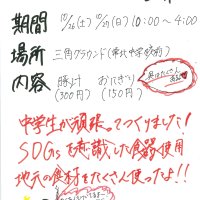 期間 10/26(土) 10/27(日) 10:00〜4:00
場所 三角グラウンド
内容 豚汁 おにぎり
(300円) (150円)
中学生が頑張ってつくりました!
SDGsを意識した食器使用
地元の食材をたくさん使ったよ!!